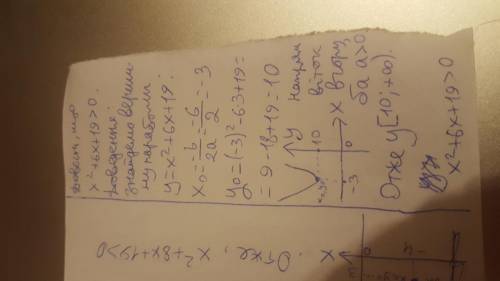 Довести, що
x²+6x+19>0.
Доведення:
Знайдемо верши-
ну параболи
y=x²+6x+19:
x₀=-b/2a=-6/2=-3
y₀=(-3)²-6·3+19=
=9-18+19=10
y
Напрям
віток
вгору,
ба a>0
10
x
-3
0
Отже y[10;+∞).
x²+6x+19>0
x
0
-4
. Отже, x²+8x+19>0